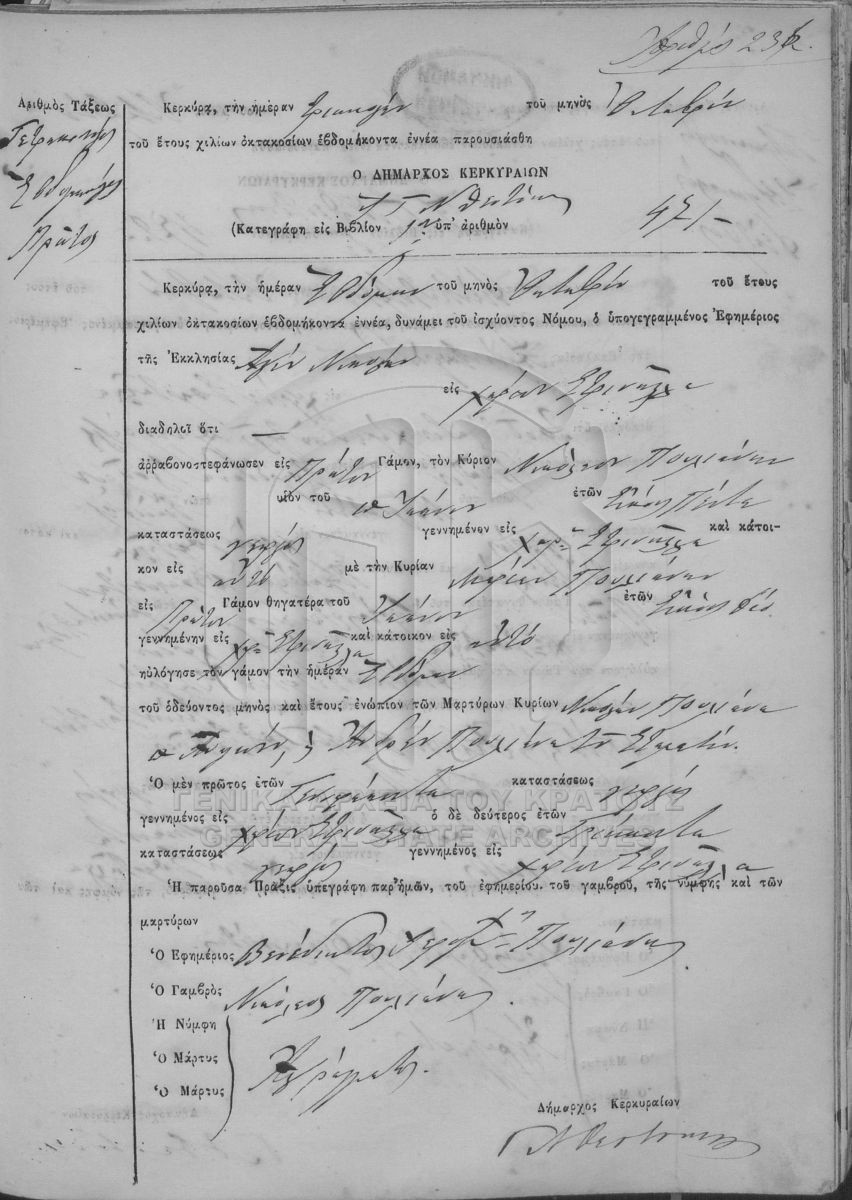 Ἀριθμὸς 23
Ἀριθμὸς Τάξεως
Τετρακοσιοστὸς
Ἑβδομηκοστὸς
Πρῶτος
Κερκύρα, τὴν ἡμέραν τριακοστὴν τοῦ μηνὸς Ὀκτωβρίου
τοῦ ἔτους χιλίων ὀκτακοσίων ἑβδομήκοντα ἐννέα παρουσιάσθη
Ο ΔΗΜΑΡΧΟΣ ΚΕΡΚΥΡΑΙΩΝ
Γ Ν Θεοτόκης
(Κατεγράφη εἰς Βιβλίον ὑπ' ἀριθμὸν 471
Κερκύρα, τὴν ἡμέραν Ἑβδόμην τοῦ μηνὸς Ὀκτωβρίου τοῦ ἔτους
χιλίων ὀκτακοσίων ἑβδομήκοντα ἐννέα, δυνάμει τοῦ ἰσχύοντος Νόμου, ὁ ὑπογεγραμμένος Ἐφημέριος
τῆς Ἐκκλησίας Ἁγίου Νικολάου
εἰς χωρίον Στρινύλλα
διαδηλοῖ ὅτι
ἀρραβονοστεφάνωσεν εἰς Πρῶτον Γάμον, τὸν Κύριον Νικόλαον Πουλιάσην
υἱὸν τοῦ Ἰωάννου ἐτῶν Εἴκοσι Πέντε
καταστάσεως γεωργὸς γεννημένον εἰς χωρ. Στρινύλλα καὶ κάτοι-
κον εἰς αὐτό μὲ τὴν Κυρίαν Μαρίαν Πουλιάση
εἰς Πρῶτον Γάμον θηγατέρα τοῦ Ἰωάννου ἐτῶν Εἴκοσι δύο
γεννημένην εἰς χωρ. Στρινύλλα καὶ κάτοικον εἰς αὐτό
ηὐλόγησε τὸν γάμον τὴν ἡμέραν Ἑβδόμην
τοῦ ὁδεύοντος μηνὸς καὶ ἔτους ἐνώπιον τῶν Μαρτύρων Κυρίων Νικολάου Πουλιάση
Ἀνδρέου Πουλιάση τοῦ Σταματίου.
Ὁ μὲν πρῶτος ἐτῶν Τεσσαράκοντα καταστάσεως γεωργὸς
γεννημένος εἰς χωρίον Στρινύλλα ὁ δὲ δεύτερος ἐτῶν Τριάκοντα
καταστάσεως γεωργὸς γεννημένος εἰς χωρίον Στρινύλλα
Ἡ παροῦσα Πρᾶξις ὑπεγράφη παρ' ἡμῶν, τοῦ ἐφημερίου, τοῦ γαμβροῦ, τῆς νύμφης καὶ τῶν
μαρτύρων
Ὁ Ἐφημέριος Βενέδικτος Πουλιάσης
Ὁ Γαμβρὸς Νικόλαος Πουλιάσης.
Ἡ Νύμφη
Ὁ Μάρτυς Ἀγράμματοι.
Ὁ Μάρτυς
Δήμαρχος Κερκυραίων
Γ Ν Θεοτόκης
ΓΕΝΙΚΑ ΑΡΧΕΙΑ ΤΟΥ ΚΡΑΤΟΥΣ
GENERAL STATE ARCHIVES